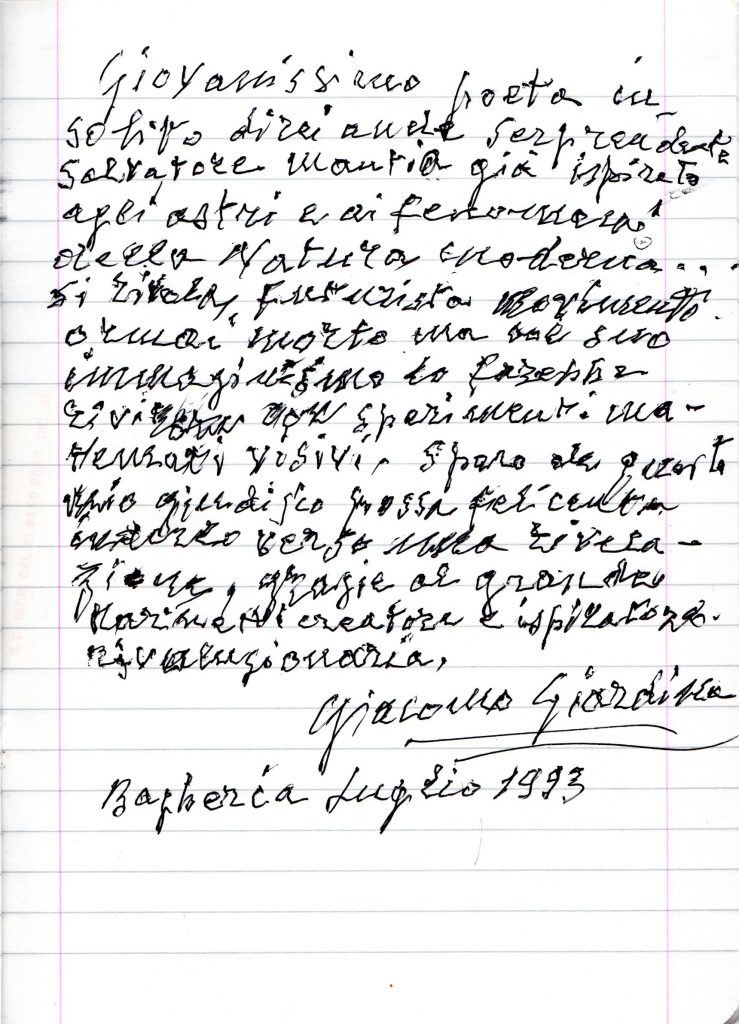 Giovanissimo poeta in
solito direi anche sorprendente
Salvatore Mantia già ispirato
agli astri e ai fenomeni
della Natura moderna...
si rivela, futurista movimento
ormai morto ma nel suo
immaginismo lo farebbe
sperimenti ma-
visivi. Spero che questa
mio giudizio possa
verso una rivela-
zione, grazie al grande
Marinetti creatore e ispiratore
rivoluzionaria,
Giacomo Giardina
Bagheria Luglio 1993